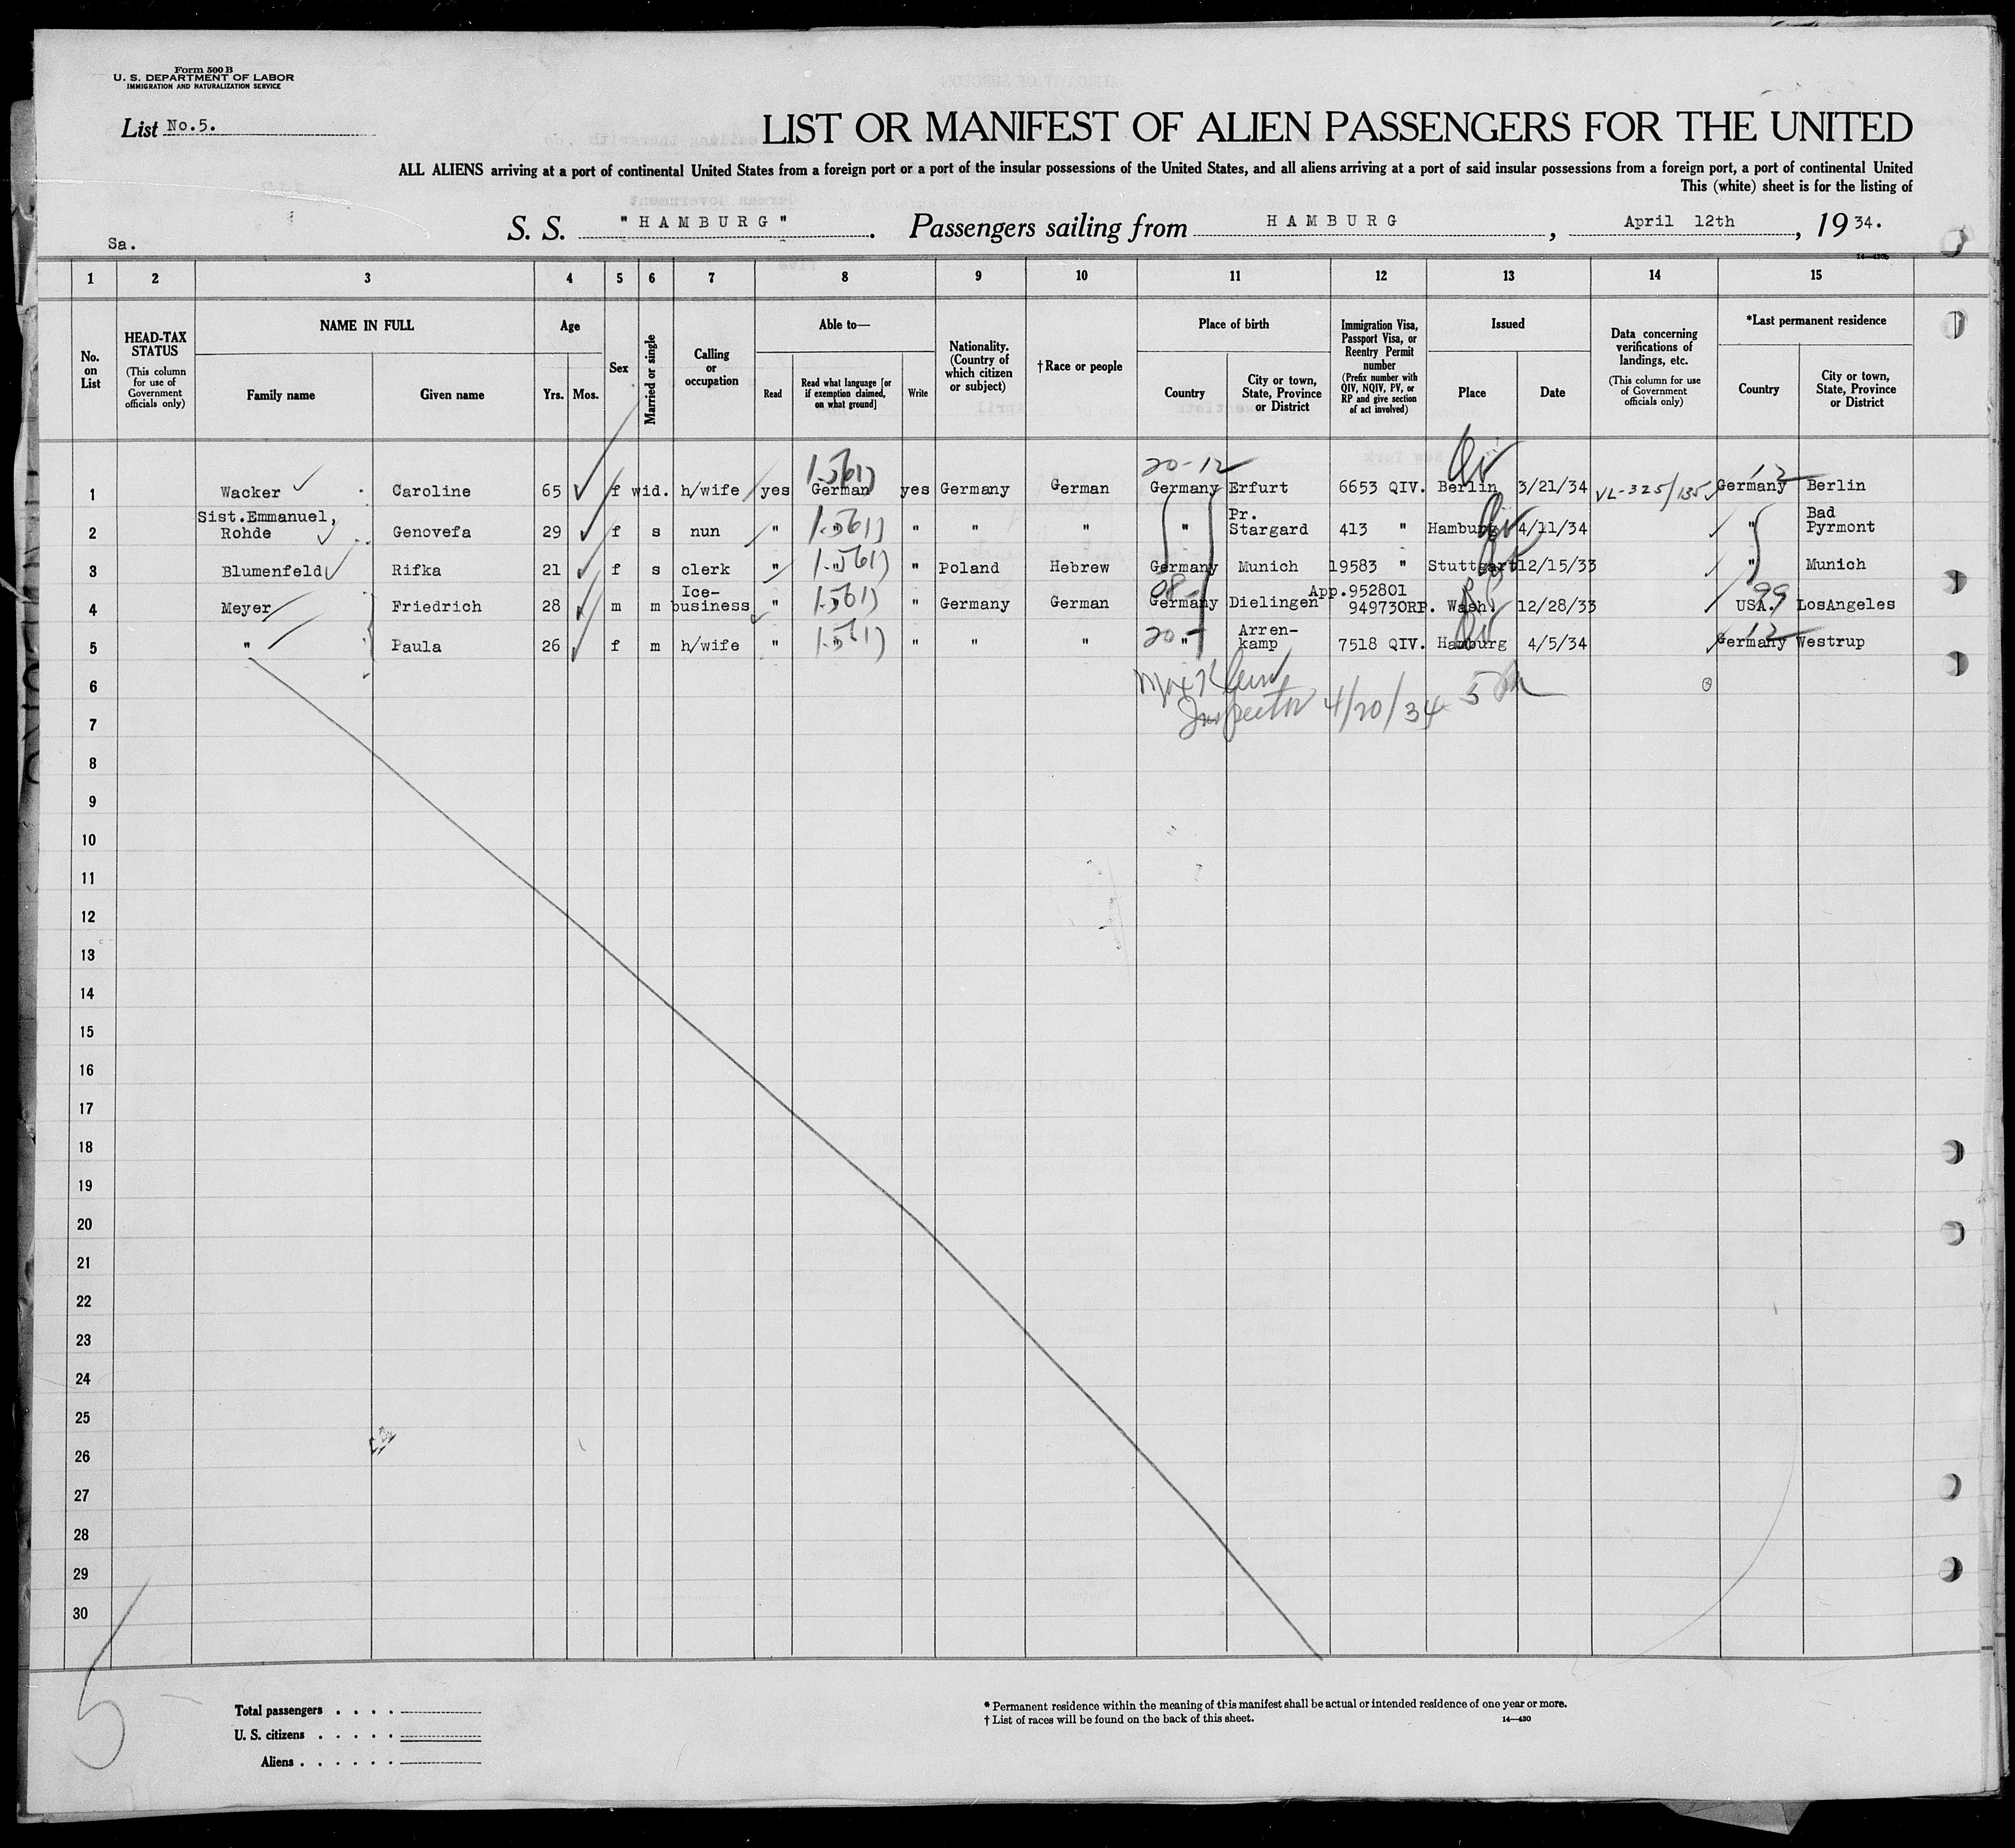 Form 500 B
U. S. DEPARTMENT OF LABOR
IMMIGRATION AND NATURALIZATION SERVICE
List No.5.
LIST OR MANIFEST OF ALIEN PASSENGERS FOR THE UNITED
ALL ALIENS arriving at a port of continental United States from a foreign port or a port of the insular possessions of the United States, and all aliens arriving at a port of said insular possessions from a foreign port, a port of continental United
This (white) sheet is for the listing of
Sa.
S. S. "HAMBURG". Passengers sailing from HAMBURG, April 12th, 1934.
1 2 3 4 5 6 7 8 9 10 11 12 13 14 15
No. on List
HEAD-TAX STATUS (This column for use of Government officials only)
NAME IN FULL
Family name Given name
Age
Yrs. Mos.
Sex
Married or single
Calling or occupation
Able to—
Read
Read what language [or if exemption claimed, on what ground]
Write
Nationality. (Country of which citizen or subject)
† Race or people
Place of birth
Country
City or town, State, Province or District
Immigration Visa, Passport Visa, or Reentry Permit number (Prefix number with QIV, NQIV, PV, or RP and give section of act involved)
Issued
Place Date
Data concerning verifications of landings, etc. (This column for use of Government officials only)
*Last permanent residence
Country
City or town, State, Province or District
20-12
1 Wacker Caroline 65 f wid. h/wife yes German yes Germany German Germany Erfurt 6653 QIV. Berlin 3/21/34 VL-325/135 Germany 12 Berlin
2 Sist.Emmanuel, Rohde Genovefa 29 f s nun " " " " " " Pr. Stargard 413 " Hamburg 4/11/34 " Bad Pyrmont
3 Blumenfeld Rifka 21 f s clerk " " " Poland Hebrew Germany Munich 19583 " Stuttgart 12/15/33 " Munich
4 Meyer Friedrich 28 m m Ice-business " " " Germany German 08- Germany Dielingen App.952801 949730RP. Wash. 12/28/33 99 USA. LosAngeles
5 " Paula 26 f m h/wife " " " " " 20- " Arren-kamp 7518 QIV. Hamburg 4/5/34 12 Germany Westrup
6
Inspector 4/20/34
7
8
9
10
11
12
13
14
15
16
17
18
19
20
21
22
23
24
25
26
27
28
29
30
5
Total passengers . . . .
U. S. citizens . . . . .
Aliens . . . . . .
* Permanent residence within the meaning of this manifest shall be actual or intended residence of one year or more.
† List of races will be found on the back of this sheet.
14—430